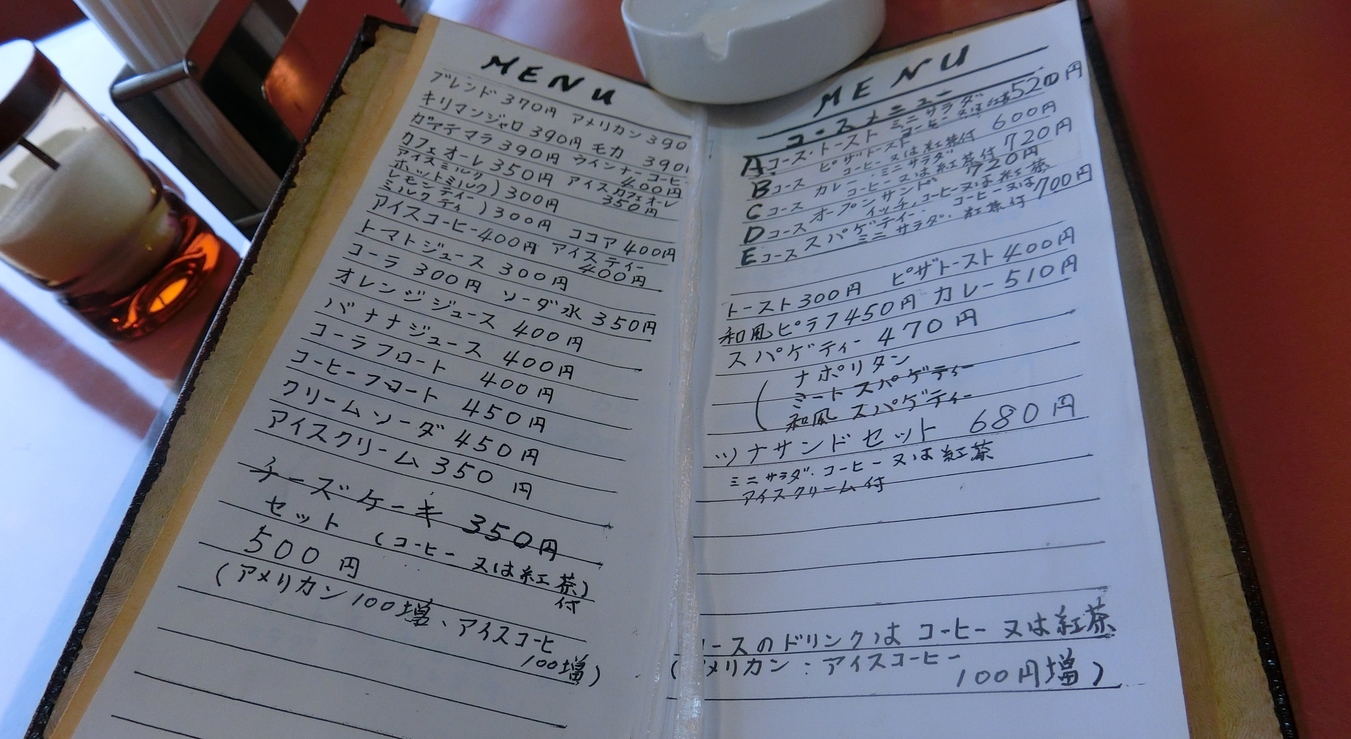 MENU
ブレンド 370円 アメリカン 390
キリマンジャロ 390円 モカ 390
ガテマラ 390円 ウインナーコーヒ
400円
カフェオーレ 350円 アイスカフェオーレ
350円
アイスミルク
ホットミルク ) 300円
レモンティー
ミルクティ ) 300円 ココア 400円
アイスコーヒー 400円 アイスティー
400円
トマトジュース 300円
コーラ 300円 ソーダ水 350円
オレンジジュース 400円
バナナジュース 400円
コーラフロート 400円
コーヒーフロート 450円
クリームソーダ 450円
アイスクリーム 350円
チーズケーキ 350円
セット (コーヒー又は紅茶)
付
500円
(アメリカン100増、アイスコーヒ
100増)
MENU
コースメニュー
Aコース・トースト ミニサラダ 520円
コーヒー又は紅茶
Bコース ピザトースト 600円
コーヒー又は紅茶付
Cコース カレー・ミニサラダ 720円
コーヒー又は紅茶付
Dコース オープンサンド 720円
コーヒー又は紅茶
Eコース スパゲティー. コーヒー又は 700円
ミニサラダ. 紅茶付
トースト300円 ピザトースト 400円
和風ピラフ450円 カレー510円
スパゲティー 470円
( ナポリタン
ミートスパゲティー
和風スパゲティー
ツナサンドセット 680円
ミニサラダ.コーヒー又は紅茶
アイスクリーム付
ースのドリンクは コーヒー又は紅茶
(アメリカン:アイスコーヒー
100円増)